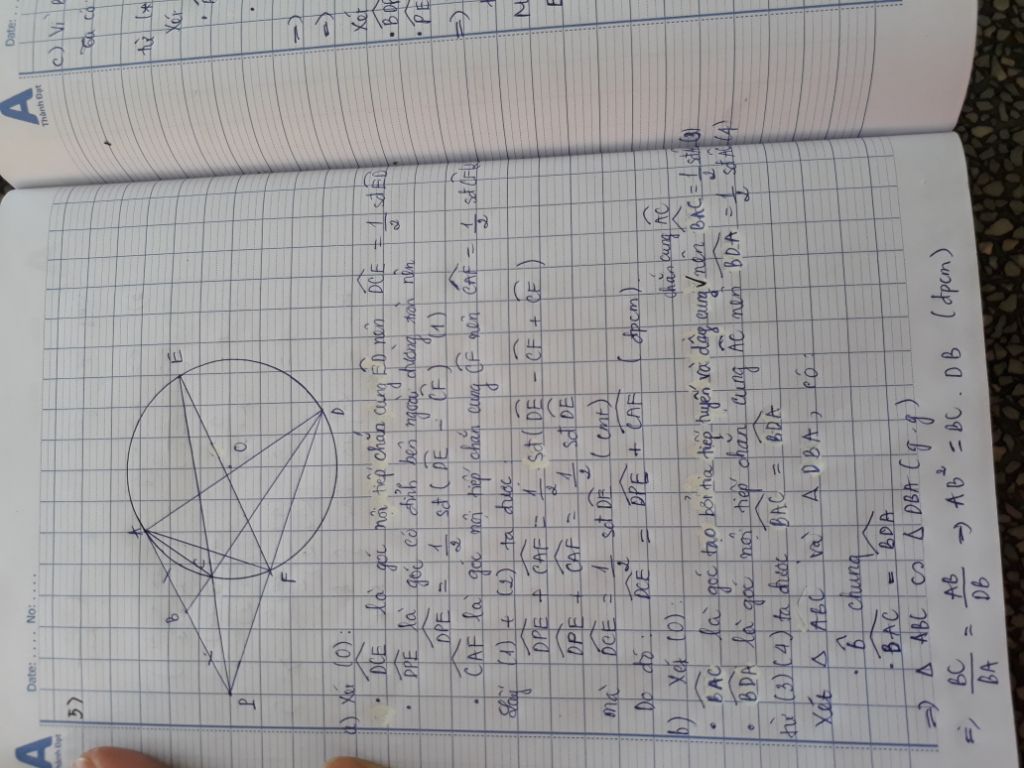 Date: ..... No: .....
A
Thành Đạt
3)
A
E
B
C
O
P
F
D
a) Xét (O):
• DCE là góc nội tiếp chắn cung ED nên DCE = 1/2 sđ ED
• DPE là góc có đỉnh bên ngoài đường tròn nên
DPE = 1/2 sđ (DE - CF) (1)
• CAF là góc nội tiếp chắn cung CF nên CAF = 1/2 sđ CF
(1) + (2) ta được
DPE + CAF = 1/2 sđ (DE - CF + CF)
DPE + CAF = 1/2 sđ DE
mà DCE = 1/2 sđ DE (cmt)
Do đó: DCE = DPE + CAF (đpcm)
b) Xét (O):
chắn cung AC
• BAC là góc tạo bởi tia tiếp tuyến và dây cung nên BAC = 1/2 sđ AC (3)
• BDA là góc nội tiếp chắn cung AC nên BDA = 1/2 sđ AC (4)
từ (3) (4) ta được BAC = BDA
Xét Δ ABC và Δ DBA, có:
• B chung
• BAC = BDA
=> Δ ABC ∽ Δ DBA (g.g)
=> BC/BA = AB/DB => AB² = BC . DB (đpcm)
Date: ...
A
Thành Đạt
c) Vì
Ta có
từ
Xét
=>
=>
Xét
=>